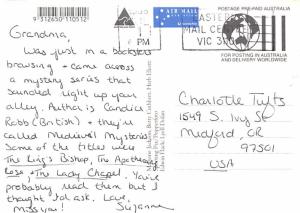 9 312650 110512
AIR MAIL
PM
EASTERN
MAIL CENTRE
VIC 3110
POSTAGE PRE-PAID AUSTRALIA
FOR POSTING IN AUSTRALIA
AND DELIVERY WORLDWIDE
Grandma,
Was just in a bookstore
browsing & came across
a mystery series that
sounded right up your
alley. Author is Candice
Robb (British) & they're
called Medieval Mysteries
Some of the titles were
The King's Bishop, The Apothecary
Rose, & The Lady Chapel. You've
probably read them but I
thought I'd ask. Love,
Miss you! Suzanne
Charlotte Tufts
1549 S. Ivy St
Medford, OR
97501
USA